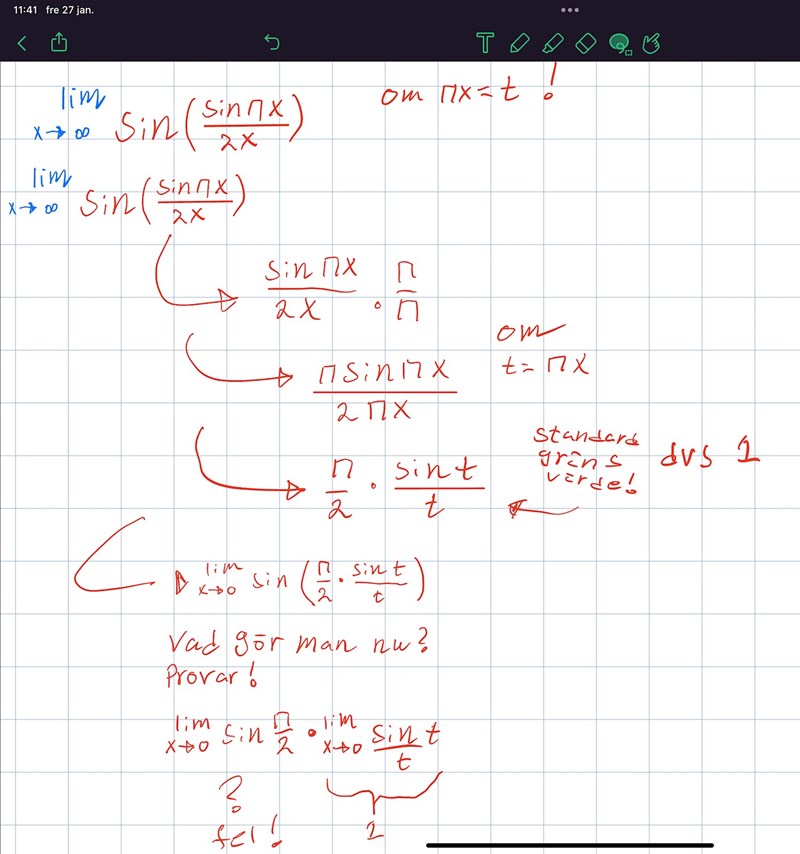 11:41 fre 27 jan.
om πx = t !
lim x→∞ sin(sin πx / 2x)
lim x→∞ sin(sin πx / 2x)
sin πx / 2x · π / π
om
t = πx
π sin πx / 2πx
standard
gräns
värde!
dvs 1
π / 2 · sin t / t
lim x→0 sin(π / 2 · sin t / t)
Vad gör man nu?
Provar!
lim x→0 sin π / 2 · lim x→0 sin t / t
?
fel!
1